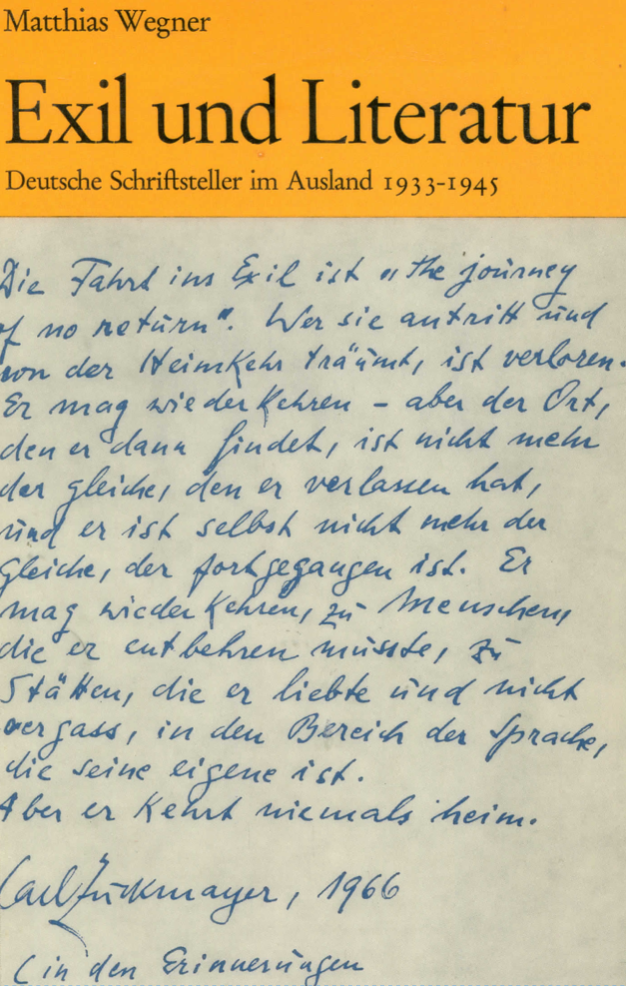 Matthias Wegner
Exil und Literatur
Deutsche Schriftsteller im Ausland 1933-1945
Die Fahrt ins Exil ist „the journey
of no return". Wer sie antritt und
von der Heimkehr träumt, ist verloren.
Er mag wiederkehren – aber der Ort,
den er dann findet, ist nicht mehr
der gleiche, den er verlassen hat,
und er ist selbst nicht mehr der
gleiche, der fortgegangen ist. Er
mag wiederkehren, zu Menschen,
die er entbehren musste, zu
Stätten, die er liebte und nicht
vergass, in den Bereich der Sprache,
die seine eigene ist.
Aber er kehrt niemals heim.
Carl Zuckmayer, 1966
(in den Erinnerungen